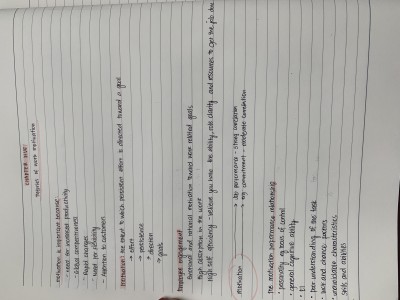 CHAPTER FIVE
Theories of Work Motivation
Motivation is important because:
- need for increased productivity
- Global competitiveness
- Rapid changes
- Need for flexibility
- Attention to customers
Motivation: The extent to which persistent effort is directed toward a goal
→ effort
→ persistence
→ direction
→ goals
Employee engagement
Emotional and rational motivation toward work related goals
High absorption in the work
High self efficiency - believe you have the ability, role clarity and resources to get the job done
Motivation
→ Job performance - strong correlation
→ org commitment - moderate correlation
The motivation performance relationship
- personality + locus of control
- general cognitive ability
- EI
- poor understanding of the task
- luck and chance factors
- characteristics
- skills and abilities